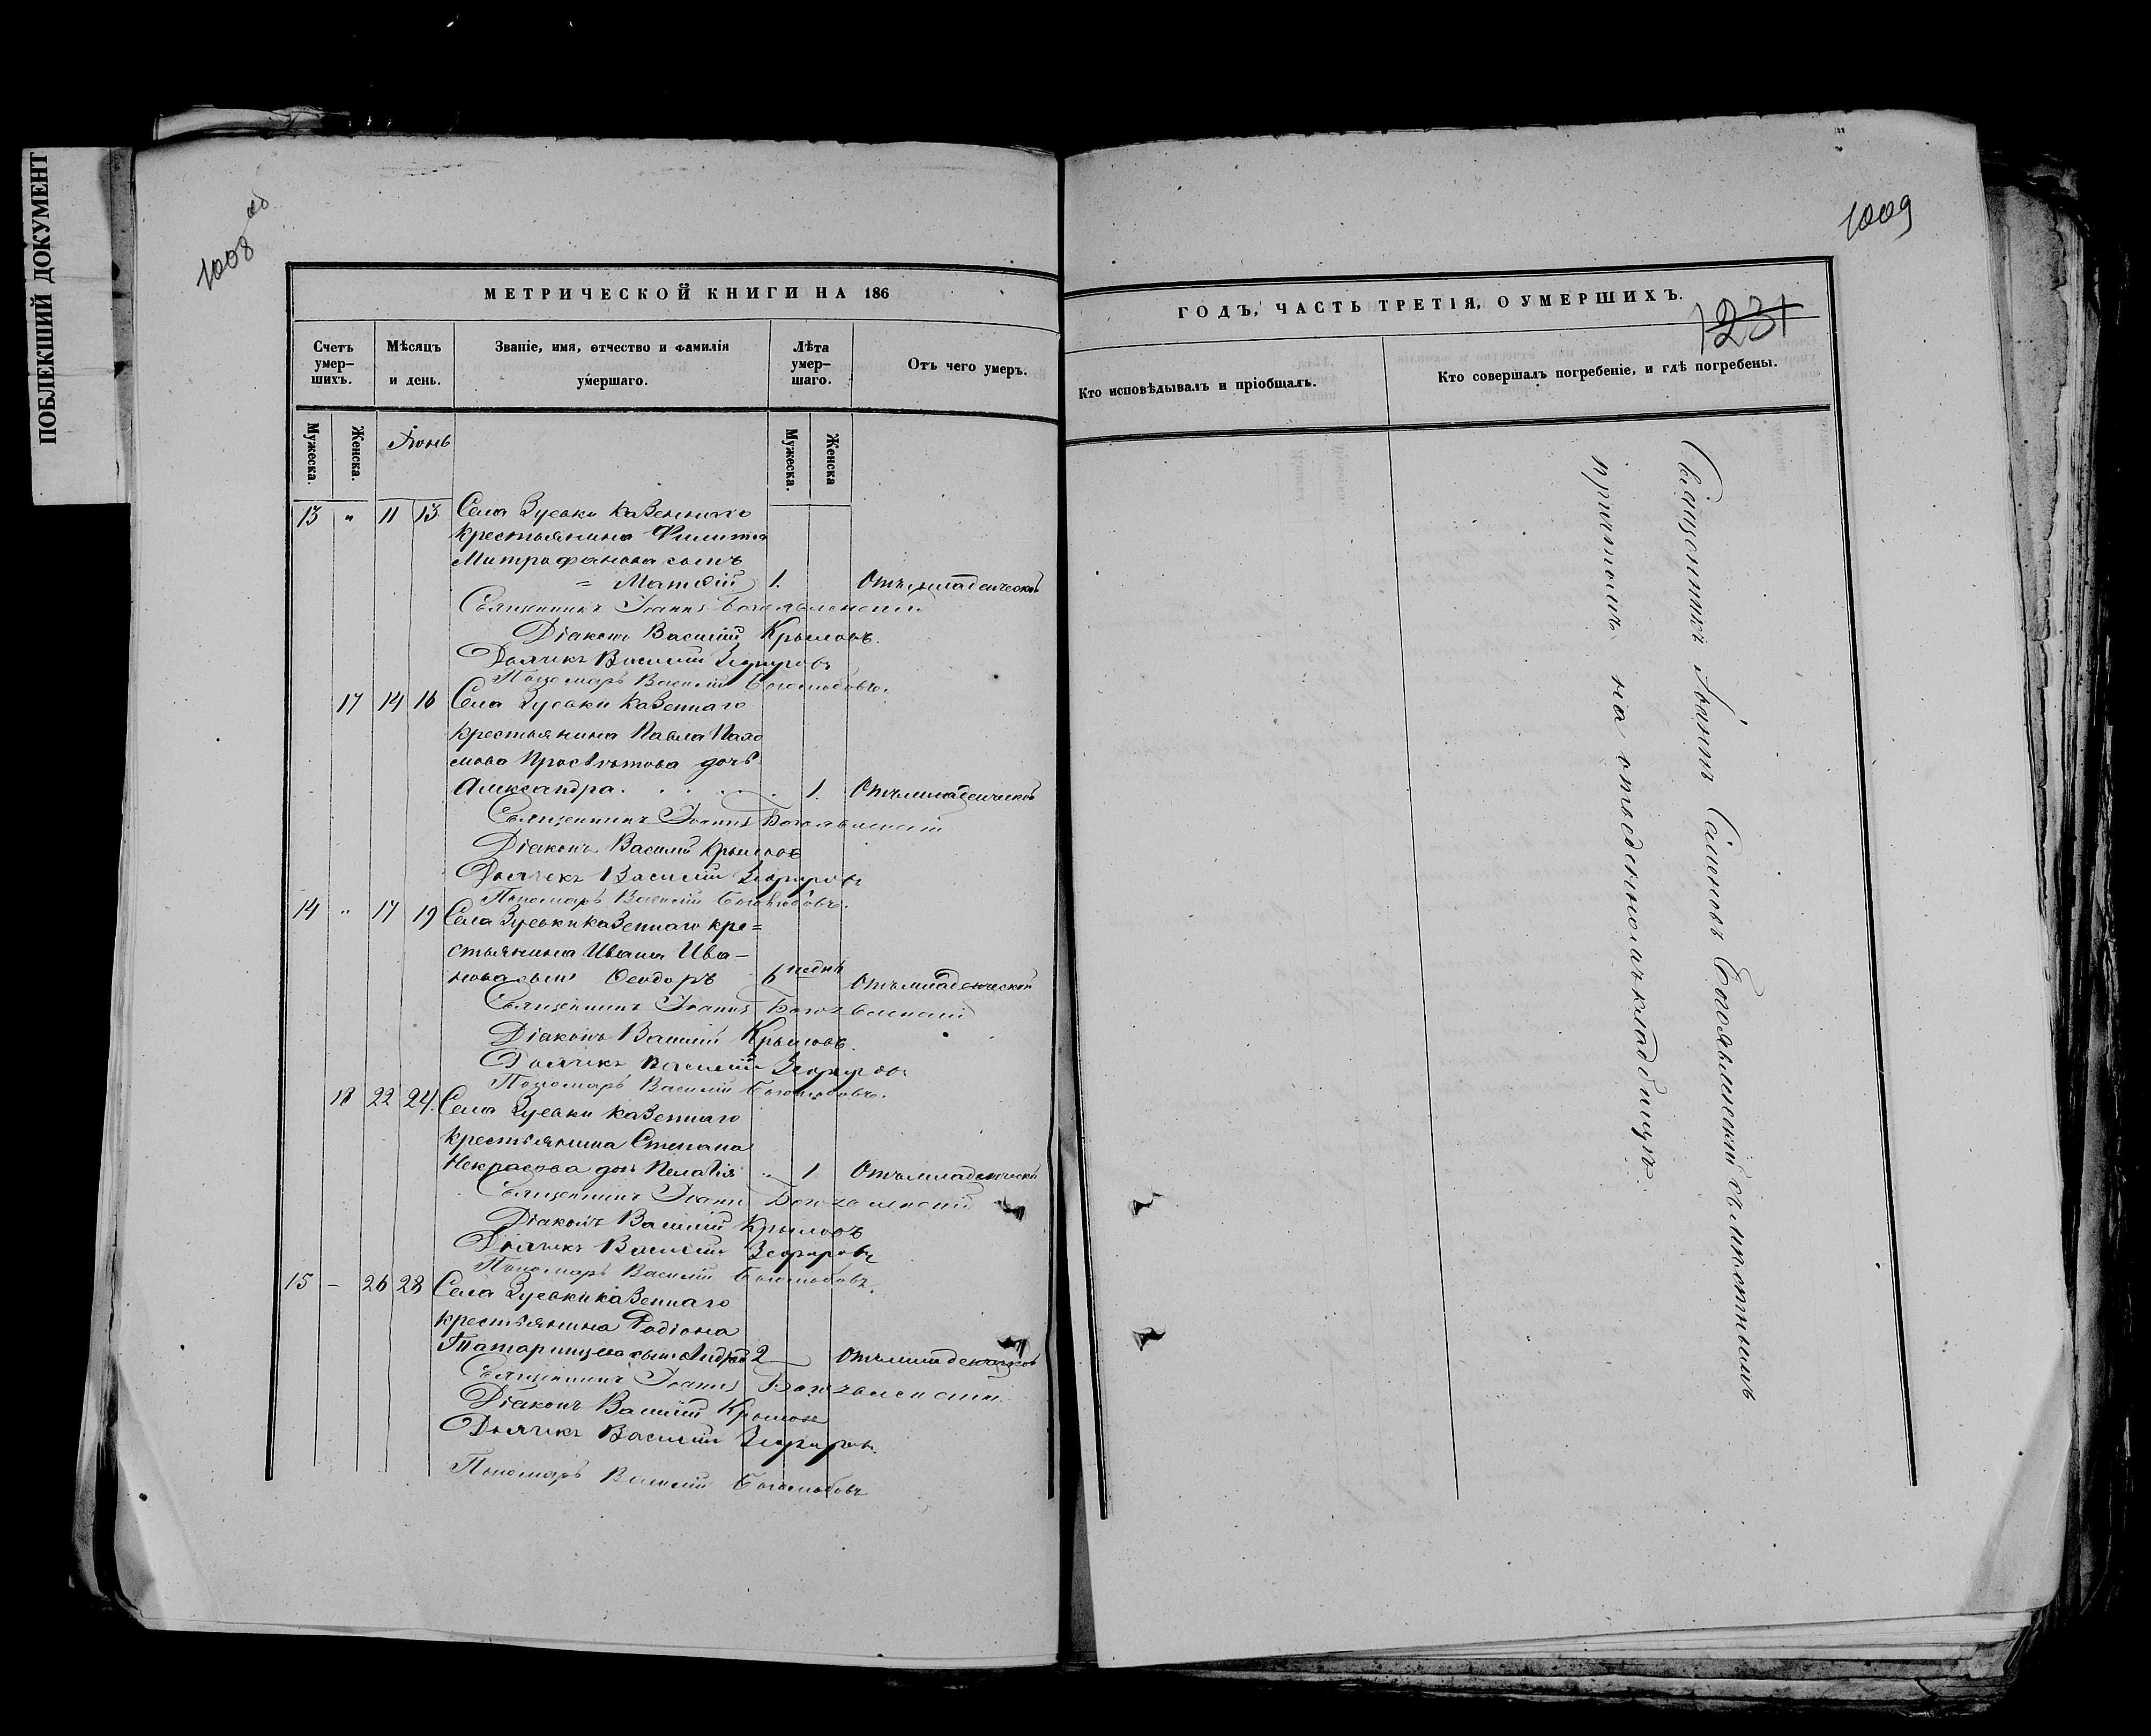 ПОБЛЕКШИЙ ДОКУМЕНТ
1008 об
МЕТРИЧЕСКОЙ КНИГИ НА 186
Счетъ умер-шихъ.
Мѣсяцъ и день.
Званіе, имя, отчество и фамилія умершаго.
Лѣта умер-шаго.
Отъ чего умеръ.
Мужеска.
Женска.
Іюнь
Мужеска.
Женска
13 " 11 13 Села Зуевки казеннаго
крестьянина Филипа
Митрофанова сынъ
= Матѳій 1. Отъ младенческой
Священникъ Іоаннъ Богоявленскій
Діаконъ Василій Крыловъ.
Дьячекъ Василій Зефировъ
Пономарь Василій Боголюбовъ.
17 14 16 Села Зуевки казеннаго
крестьянина Павла Пахо
мова Просвѣтова дочь
Александра. 1. Отъ младенческой
Священникъ Іоаннъ Богоявленскій
Діаконъ Василій Крыловъ
Дьячекъ Василій Зефировъ
Пономарь Василій Боголюбовъ.
14 " 17 19 Села Зуевки казеннаго кре=
стьянина Ивана Ива-
нова сынъ Ѳеодоръ 6 недѣл Отъ младенческой
Священникъ Іоаннъ Богоявленскій
Діаконъ Василій Крыловъ.
Дьячекъ Василій Зефировъ
Пономарь Василій Боголюбовъ.
18 22 24. Села Зуевки казеннаго
крестьянина Степана
Некрасова дочь Пелагія 1 Отъ младенческой
Священникъ Іоаннъ Богоявленскій
Діаконъ Василій Крыловъ
Дьячекъ Василій Зефировъ
Пономарь Василій Боголюбовъ.
15 - 26 28 Села Зуевки казеннаго
крестьянина Родіона
Татаринцева сынъ Андрей 2 Отъ младенческой
Священникъ Іоаннъ Богоявленскій
Діаконъ Василій Крыловъ
Дьячекъ Василій Зефировъ.
Пономарь Василій Боголюбовъ
1009
ГОДЪ, ЧАСТЬ ТРЕТІЯ, О УМЕРШИХЪ.
1231
Кто исповѣдывалъ и пріобщалъ.
Кто совершалъ погребеніе, и гдѣ погребены.
Священникъ Іоаннъ Семеновъ Богоявленскій съ
причтомъ на отведенномъ кладбищѣ.